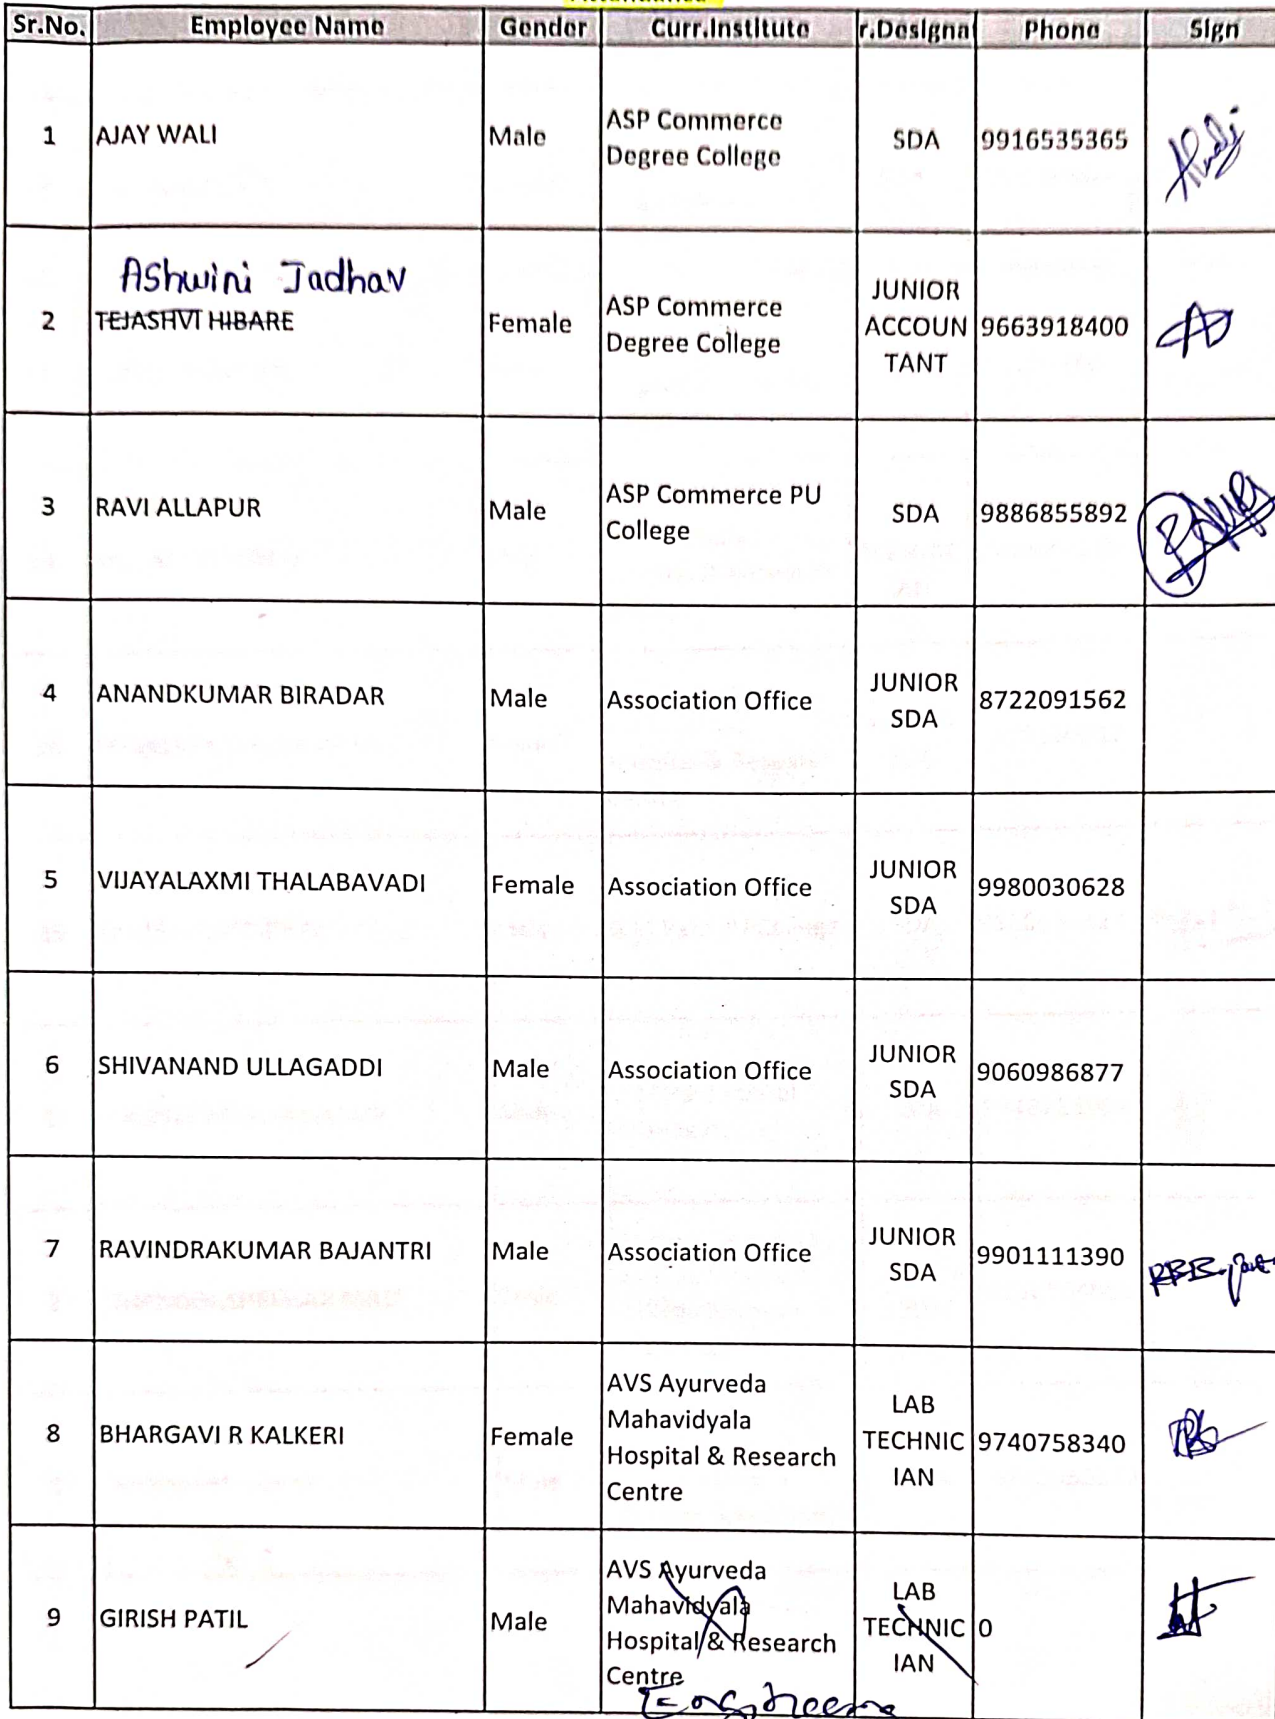 Sr.No. Employee Name Gender Curr.Institute r.Designa Phone Sign
1 AJAY WALI Male ASP Commerce Degree College SDA 9916535365
Ashwini Jadhav
2 TEJASHVI HIBARE Female ASP Commerce Degree College JUNIOR ACCOUN TANT 9663918400
3 RAVI ALLAPUR Male ASP Commerce PU College SDA 9886855892
4 ANANDKUMAR BIRADAR Male Association Office JUNIOR SDA 8722091562
5 VIJAYALAXMI THALABAVADI Female Association Office JUNIOR SDA 9980030628
6 SHIVANAND ULLAGADDI Male Association Office JUNIOR SDA 9060986877
7 RAVINDRAKUMAR BAJANTRI Male Association Office JUNIOR SDA 9901111390
8 BHARGAVI R KALKERI Female AVS Ayurveda Mahavidyala Hospital & Research Centre LAB TECHNIC IAN 9740758340
9 GIRISH PATIL Male AVS Ayurveda Mahavidyala Hospital & Research Centre LAB TECHNIC IAN 0